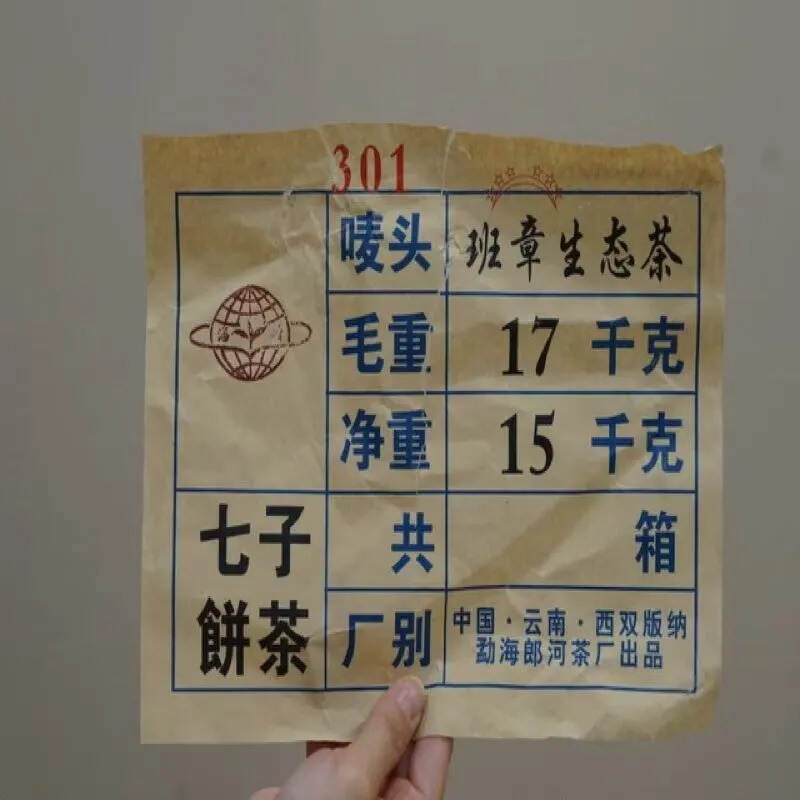 301
唛头 班章生态茶
毛重 17 千克
净重 15 千克
七子 共 箱
餅茶 厂别 中国·云南·西双版纳
勐海郎河茶厂出品